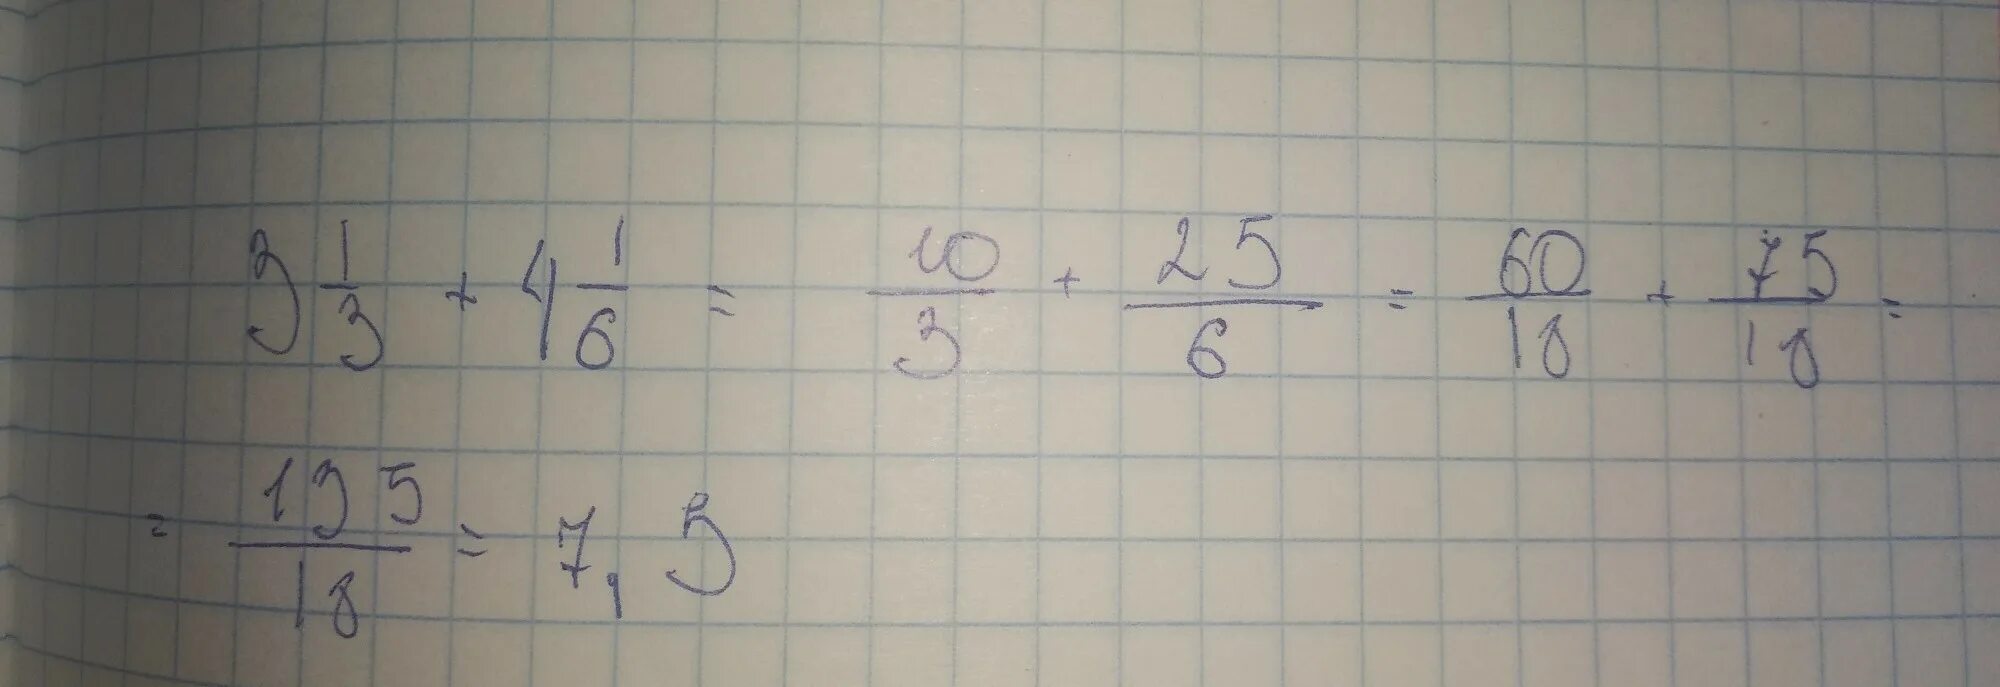 3 1/3 + 4 1/6 = 10/3 + 25/6 = 60/18 + 75/18 =
= 135/18 = 7,5